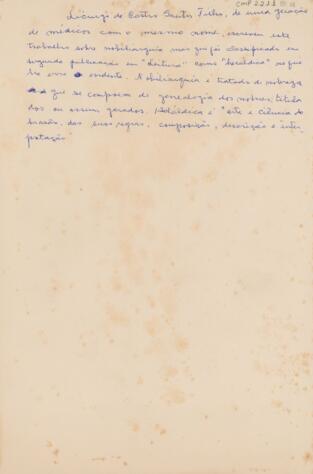 CMP 2.2.1.1
Licurgo de Castro Santos Filho, de uma geração
de médicos com o mesmo nome, escreveu este
trabalho sobre nobiliarquia mas que foi classificado em
segunda publicação em "Leitura" como "heráldica" no que
há erro e
Nobiliarquia é tratado de nobreza
que se compõem de genealogia dos nobres, titula
dos ou assim gerados. Heráldica é "arte e ciência do
brasão, das suas regras, composição, descrição e inter
pretação